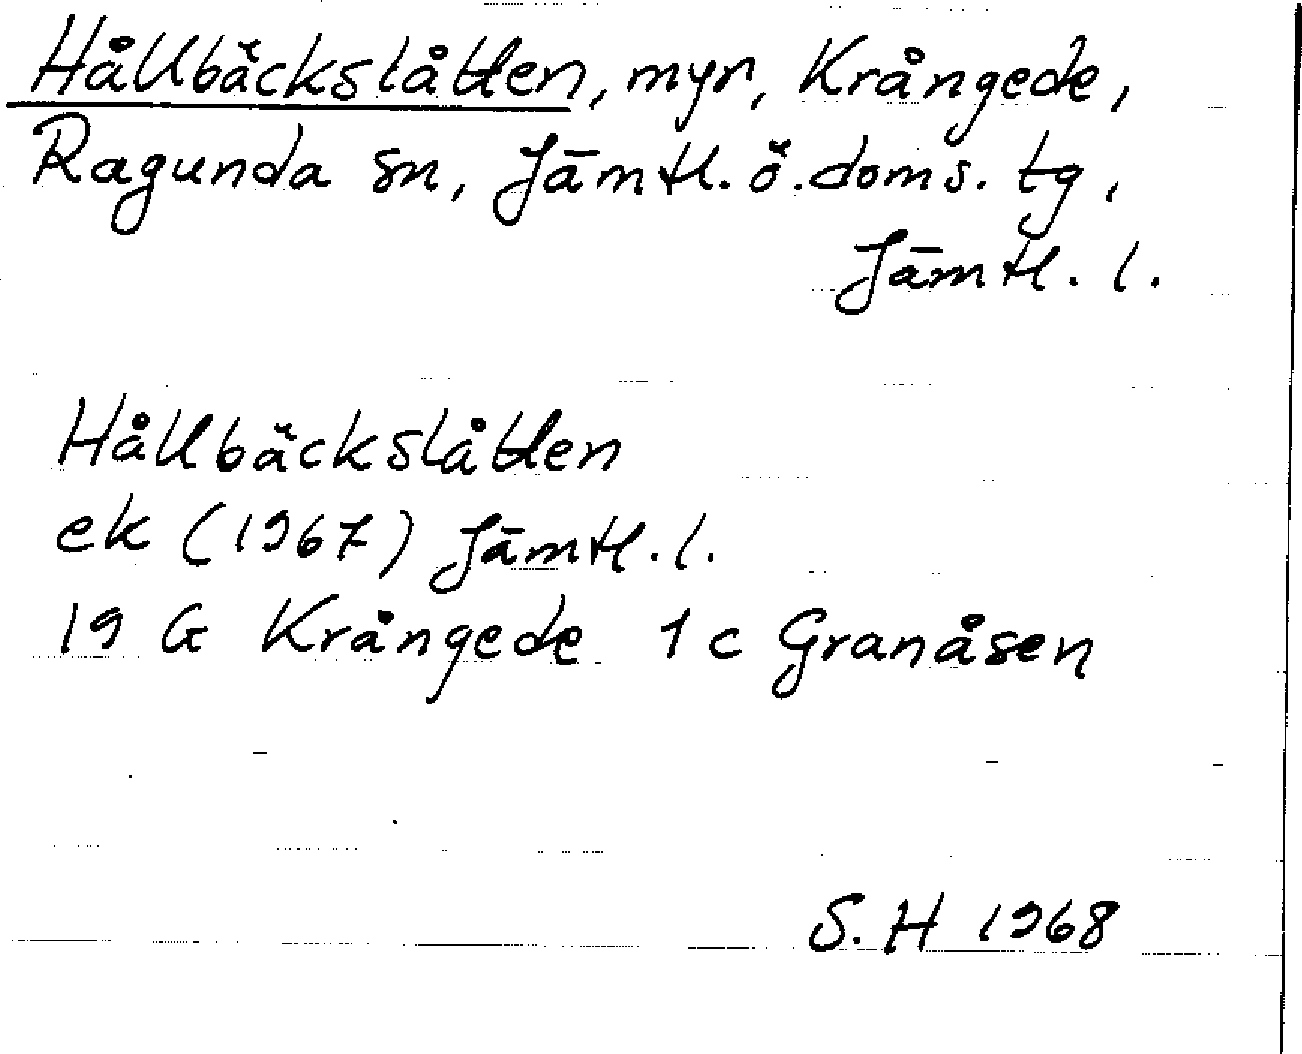 Hållbäckslåtten, myr, Krångede,
Ragunda sn, Jämtl. ö. doms. tg,
Jämtl. l.
Hållbäckslåtten
ek (1967) Jämtl. l.
19 G Krångede 1 c Granåsen
S. H 1968